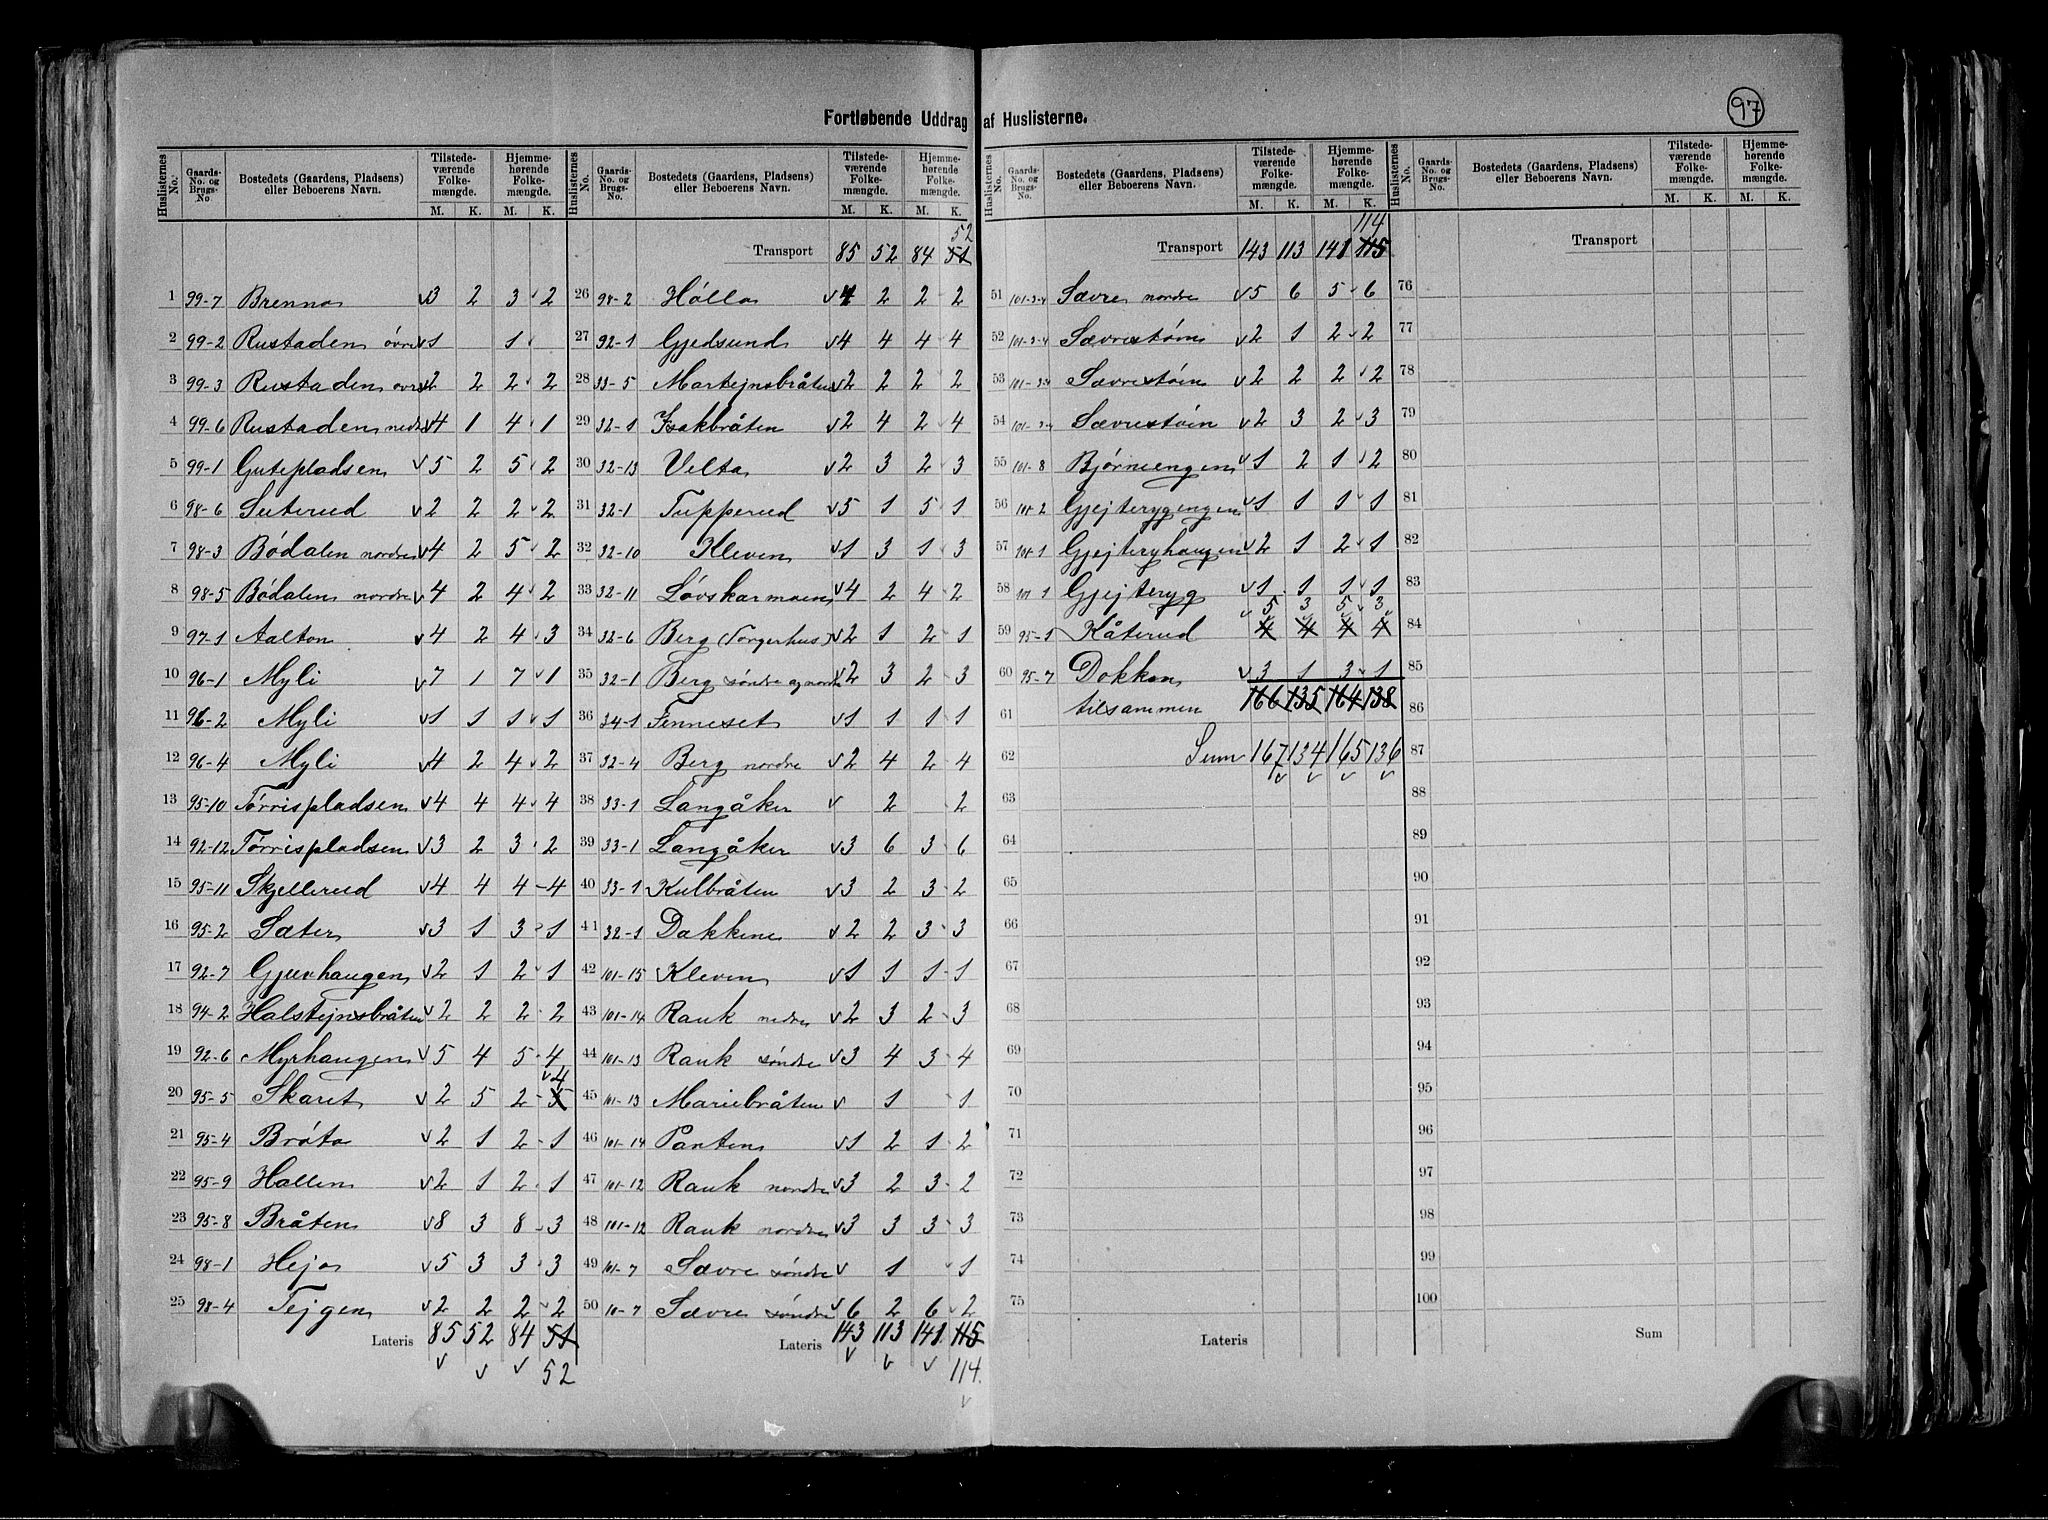 97
Fortløbende Uddrag af Huslisterne.
Huslisternes No. Gaards-No. og Brugs-No. Bostedets (Gaardens, Pladsens) eller Beboerens Navn. Tilstedeværende Folkemængde. M. K. Hjemmehørende Folkemængde. M. K.
1 99-7 Brenna 3 2 3 2
2 99-2 Rustaden øvre 1 1
3 99-3 Rustaden øvre 2 2 2 2
4 99-6 Rustaden nedre 4 1 4 1
5 99-1 Gutepladsen 5 2 5 2
6 98-6 Suterud 2 2 2 2
7 98-3 Bødalen nordre 4 2 5 2
8 98-5 Bødalen nordre 4 2 4 2
9 97-1 Aalton 4 2 4 3
10 96-1 Myli 7 1 7 1
11 96-2 Myli 1 1 1 1
12 96-4 Myli 4 2 4 2
13 95-10 Tørrispladsen 4 4 4 4
14 92-12 Tørrispladsen 3 2 3 2
15 95-11 Skjellerud 4 4 4 4
16 95-2 Sæter 3 1 3 1
17 92-7 Gjuvhaugen 2 1 2 1
18 94-2 Halstejnsbråten 2 2 2 2
19 92-6 Myrhaugen 5 4 5 4
20 95-5 Skaret 2 5 2 5 4
21 95-4 Bråta 2 1 2 1
22 95-9 Hallen 2 1 2 1
23 95-8 Bråten 8 3 8 3
24 98-1 Heja 5 3 3 3
25 98-4 Tejgen 2 2 2 2
Lateris 85 52 84 51
52
Huslisternes No. Gaards-No. og Brugs-No. Bostedets (Gaardens, Pladsens) eller Beboerens Navn. Tilstedeværende Folkemængde. M. K. Hjemmehørende Folkemængde. M. K.
52
Transport 85 52 84 51
26 98-2 Hølla 4 2 2 2
27 92-1 Gjedsund 4 4 4 4
28 33-5 Martejnsbråten 2 2 2 2
29 32-1 Isakbråten 2 4 2 4
30 32-13 Velta 2 3 2 3
31 32-1 Tupperud 5 1 5 1
32 32-10 Kleven 1 3 1 3
33 32-11 Løvskarmoen 4 2 4 2
34 32-6 Berg (Torgerhus) 2 1 2 1
35 32-1 Berg søndre og nordre 2 3 2 3
36 34-1 Finneset 1 1 1 1
37 32-4 Berg nordre 2 4 2 4
38 33-1 Langåker 2 2
39 33-1 Langåker 3 6 3 6
40 33-1 Kulbråten 3 2 3 2
41 32-1 Dokkene 2 2 3 3
42 101-15 Kleven 1 1 1 1
43 101-14 Rauk nedre 2 3 2 3
44 101-13 Rauk søndre 3 4 3 4
45 101-13 Mariebråten 1 1
46 101-14 Panten 1 2 1 2
47 101-12 Rauk nordre 3 2 3 2
48 101-12 Rauk nordre 3 3 3 3
49 101-7 Sævre søndre 1 1
50 10-7 Sævre søndre 6 2 6 2
Lateris 143 113 141 115
114
Huslisternes No. Gaards-No. og Brugs-No. Bostedets (Gaardens, Pladsens) eller Beboerens Navn. Tilstedeværende Folkemængde. M. K. Hjemmehørende Folkemængde. M. K.
114
Transport 143 113 141 115
51 101-3-4 Sævre nordre 5 6 5 6
52 101-3-4 Sævrestøin 2 1 2 2
53 101-3-4 Sævrestøin 2 2 2 2
54 101-3-4 Sævrestøin 2 3 2 3
55 101-8 Bjørneengen 1 2 1 2
56 101-2 Gjejterygengen 1 1 1 1
57 101-1 Gjejteryhaugen 2 1 2 1
58 101 1 Gjejteryg 1 1 1 1
5 3 5 3
59 95-1 Kåterud 4 4 4 4
60 95-7 Dokken 3 1 3 1
61 tilsammen 166 135 164 138
62 Sum 167 134 165 136
63
64
65
66
67
68
69
70
71
72
73
74
75
Lateris
Huslisternes No. Gaards-No. og Brugs-No. Bostedets (Gaardens, Pladsens) eller Beboerens Navn. Tilstedeværende Folkemængde. M. K. Hjemmehørende Folkemængde. M. K.
Transport
76
77
78
79
80
81
82
83
84
85
86
87
88
89
90
91
92
93
94
95
96
97
98
99
100
Sum